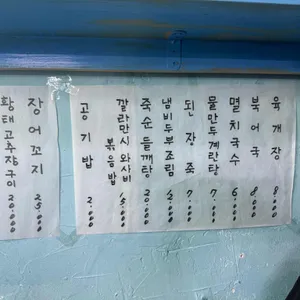 육개장 8.000
북어국 8.000
멸치국수 6.000
물만두계란탕 7.000
된장죽 7.000
냄비두부조림 12.000
죽순들깨탕 20.000
깔라만시와사비
볶음밥 15.000
공기밥 2.000
장어꼬지 25.000
황태고추장구이 20.000